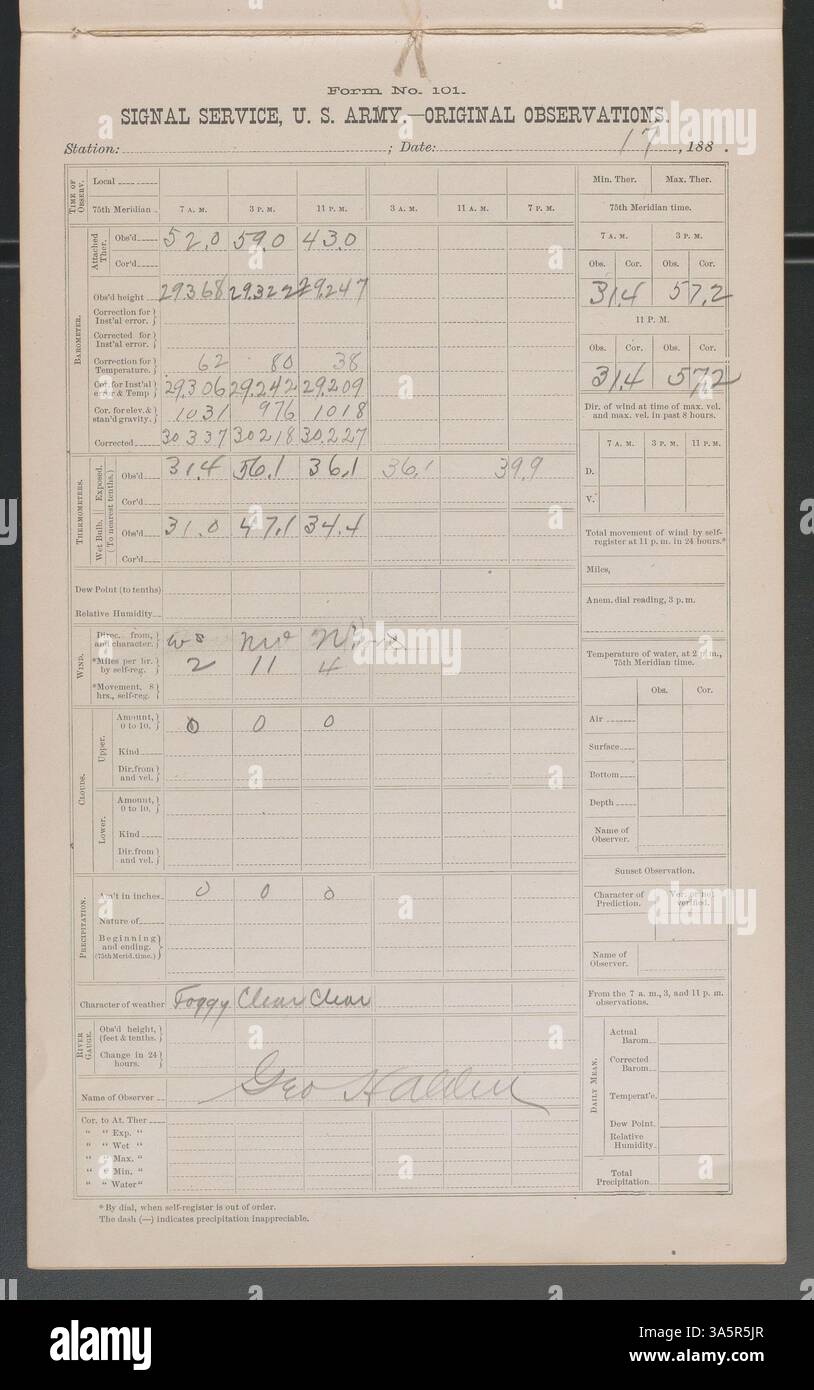 Form No. 101.
SIGNAL SERVICE, U. S. ARMY.—ORIGINAL OBSERVATIONS.
Station: ; Date: 17 , 188 .
TIME OF OBSERV.
Local
75th Meridian 7 A. M. 3 P. M. 11 P. M. 3 A. M. 11 A. M. 7 P. M.
BAROMETER.
Attached Ther.
Obs'd 52.0 59.0 43.0
Cor'd
Obs'd height 29.368 29.322 29.247
Correction for Inst'al error.
Corrected for Inst'al error.
Correction for Temperature. 62 80 38
Cor. for Inst'al error & Temp 29.306 29.242 29.209
Cor. for elev. & stan'd gravity. 1031 976 1018
Corrected 30 337 30 218 30.227
THERMOMETERS.
(To nearest tenths.)
Exposed.
Obs'd 31.4 56.1 36.1 36.1 39.9
Cor'd
Wet Bulb.
Obs'd 31.0 47.1 34.4
Cor'd
Dew Point (to tenths)
Relative Humidity
WIND.
Direc. from, and character. NW
*Miles per hr. by self-reg. 2 11 4
*Movement, 8 hrs., self-reg.
CLOUDS.
Upper.
Amount, 0 to 10. 0 0 0
Kind
Dir. from and vel.
Lower.
Amount, 0 to 10.
Kind
Dir. from and vel.
PRECIPITATION.
Am't in inches 0 0 0
Nature of
Beginning and ending. (75th Merid. time.)
Character of weather Foggy Clear Clear
RIVER GAUGE.
Obs'd height, (feet & tenths.)
Change in 24 hours.
Name of Observer Geo
Cor. to At. Ther
" " Exp. "
" " Wet "
" " Max. "
" " Min. "
" " Water "
* By dial, when self-register is out of order.
The dash (—) indicates precipitation inappreciable.
Min. Ther. Max. Ther.
75th Meridian time.
7 A. M. 3 P. M.
Obs. Cor. Obs. Cor.
31.4 57.2
11 P. M.
Obs. Cor. Obs. Cor.
31.4 57.2
Dir. of wind at time of max. vel. and max. vel. in past 8 hours.
7 A. M. 3 P. M. 11 P. M.
D.
V.
Total movement of wind by self-register at 11 p. m. in 24 hours.*
Miles,
Anem. dial reading, 3 p. m.
Temperature of water, at 2 p. m., 75th Meridian time.
Obs. Cor.
Air
Surface
Bottom
Depth
Name of Observer.
Sunset Observation.
Character of Prediction. Ver. or not verified.
Name of Observer.
From the 7 a. m., 3, and 11 p. m. observations.
DAILY MEAN.
Actual Barom.
Corrected Barom.
Temperat'e.
Dew Point.
Relative Humidity.
Total Precipitation
alamy
Image ID: 3A5R5JR
www.alamy.com